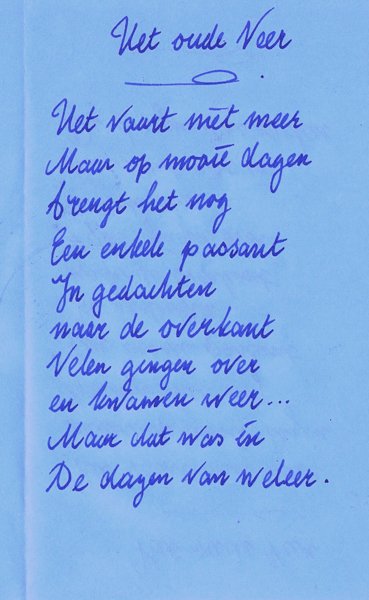 Het oude Veer
Het vaart niet meer
Maar op mooie dagen
brengt het nog
Een enkele passant
In gedachten
naar de overkant
Velen gingen over
en kwamen weer...
Maar dat was in
De dagen van weleer.